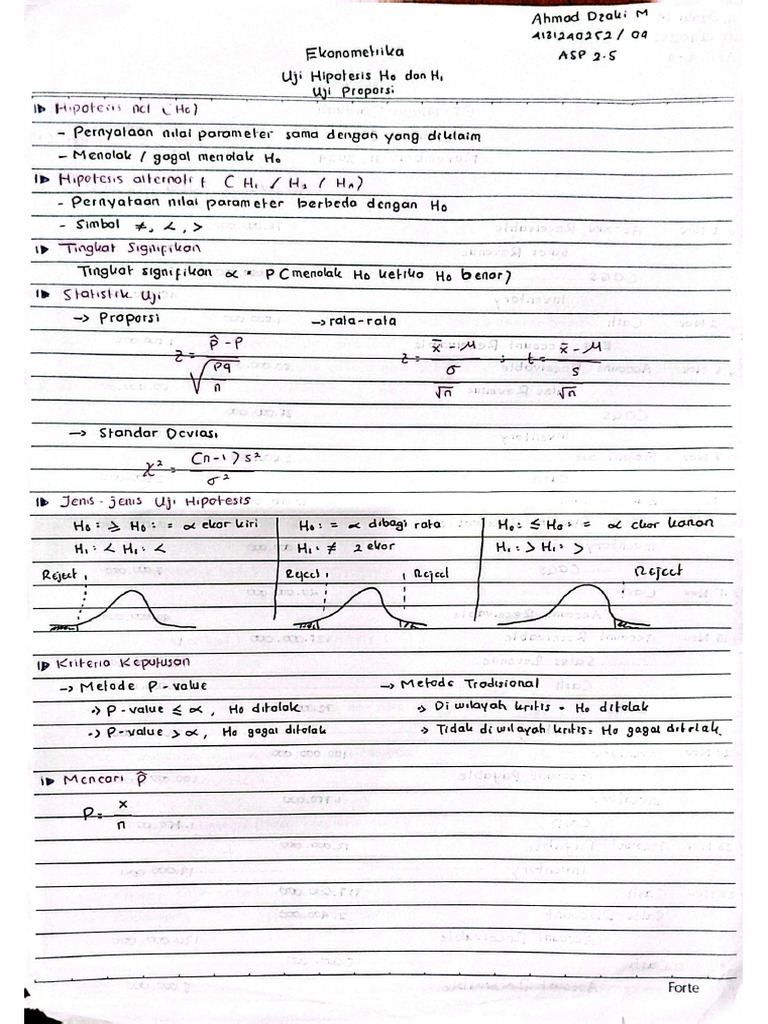 Ahmad Dzaki M
4131240252 / 09
ASP 2.5
Ekonometrika
Uji Hipotesis H₀ dan H₁
Uji Proporsi
Hipotesis nol (H₀)
- Pernyataan nilai parameter sama dengan yang diklaim
- Menolak / gagal menolak H₀
Hipotesis alternatif (H₁ / H₂ / Hₐ)
- Pernyataan nilai parameter berbeda dengan H₀
- Simbol ≠, <, >
Tingkat Signifikan
Tingkat signifikan α = P (menolak H₀ ketika H₀ benar)
Statistik Uji
→ Proporsi → rata-rata
z = (p̂ - p) / √(pq / n) z = (x̄ - μ) / (σ / √n) ; t = (x̄ - μ) / (s / √n)
→ Standar Deviasi
χ² = (n-1) s² / σ²
Jenis-jenis Uji Hipotesis
H₀: ≥ H₀: = α ekor kiri H₀: = α dibagi rata H₀: ≤ H₀: = α ekor kanan
H₁: < H₁: < H₁: ≠ 2 ekor H₁: > H₁: >
Reject Reject Reject Reject
Kriteria Keputusan
→ Metode P-value → Metode Tradisional
·> P-value ≤ α, H₀ ditolak ·> Di wilayah kritis = H₀ ditolak
·> P-value > α, H₀ gagal ditolak ·> Tidak di wilayah kritis = H₀ gagal ditolak.
Mencari p̂
P = x / n
Forte